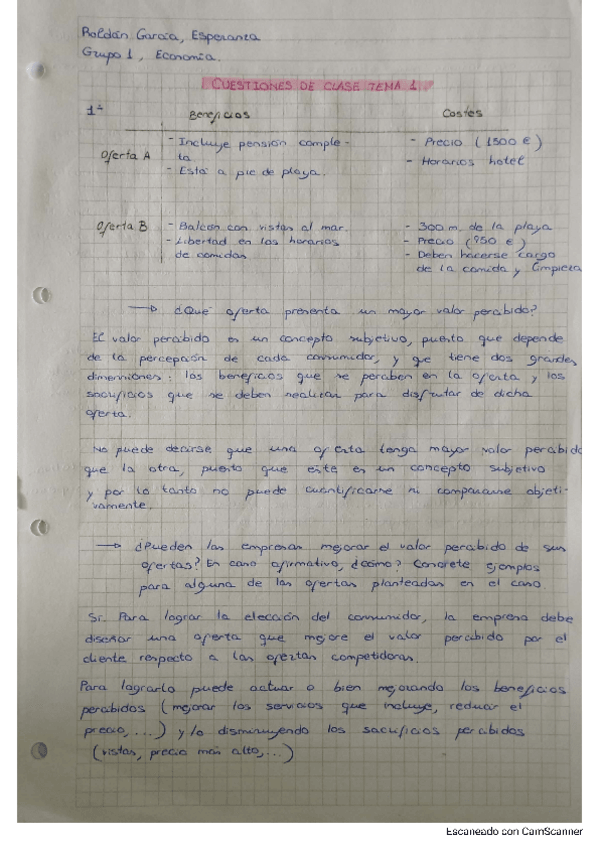 Roldán García, Esperanza
Grupo 1, Economía.
CUESTIONES DE CLASE TEMA 1
1ª
Beneficios Costes
Oferta A
- Incluye pensión comple-
ta
- Está a pie de playa.
- Precio (1500 €)
- Horarios hotel
Oferta B
- Balcon con vistas al mar.
- Libertad en los horarios
de comidas
- 300 m. de la playa
- Precio (950 €)
- Deben hacerse cargo
de la comida y limpieza
→ ¿Qué oferta presenta un mayor valor percibido?
El valor percibido es un concepto subjetivo, puesto que depende
de la percepción de cada consumidor, y que tiene dos grandes
dimensiones: los beneficios que se perciben en la oferta y los
sacrificios que se deben realizar para disfrutar de dicha
oferta.
No puede decirse que una oferta tenga mayor valor percibido
que la otra, puesto que este es un concepto subjetivo
y por lo tanto no puede cuantificarse ni compararse objeti-
vamente.
→ ¿Pueden las empresas mejorar el valor percibido de sus
ofertas? En caso afirmativo, ¿cómo? Concrete ejemplos
para alguna de las ofertas planteadas en el caso
Si. Para lograr la elección del consumidor, la empresa debe
diseñar una oferta que mejore el valor percibido por el
cliente respecto a las ofertas competidoras.
Para lograrlo puede actuar o bien mejorando los beneficios
percibidos (mejorar los servicios que incluye, reducir el
precio, ...) y/o disminuyendo los sacrificios percibidos
(vistas, precio más alto, ...)
Escaneado con CamScanner